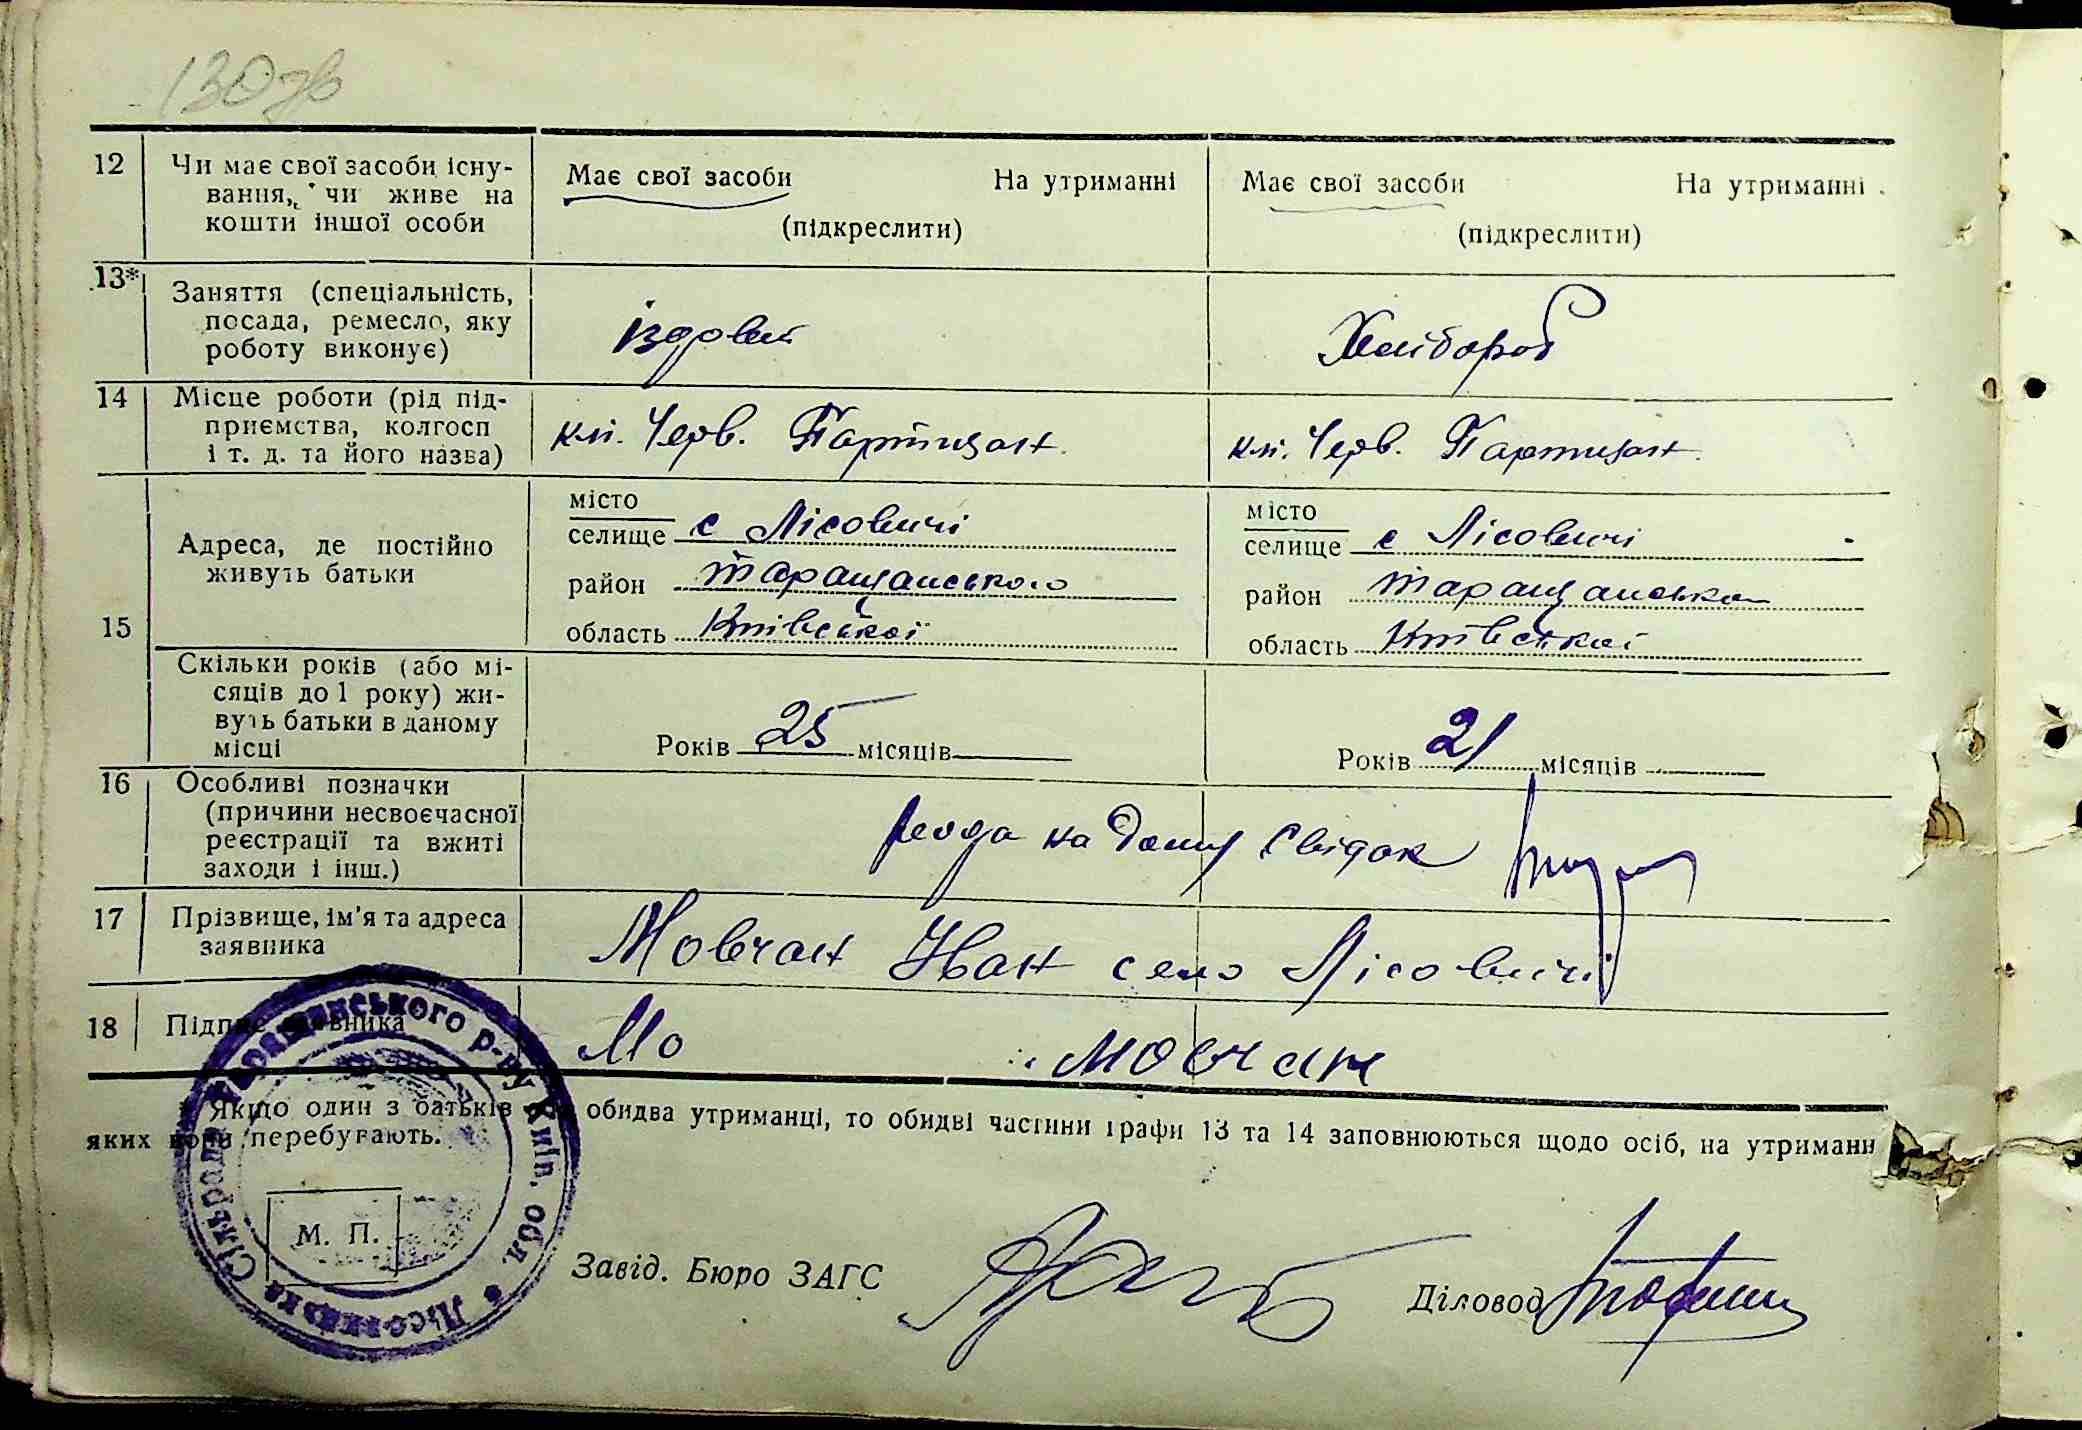 130 зв
12 Чи має свої засоби існу-
вання, чи живе на
кошти іншої особи
Має свої засоби На утриманні
(підкреслити)
Має свої засоби На утриманні
(підкреслити)
13* Заняття (спеціальність,
посада, ремесло, яку
роботу виконує)
їздовий
Хлібороб
14 Місце роботи (рід під-
приємства, колгосп
і т. д. та його назва)
клг. Черв. Партизан.
клг. Черв. Партизан.
15 Адреса, де постійно
живуть батьки
місто
селище с Лісовичі
район таращанського
область Київської
місто
селище с Лісовичі
район таращансько
область Київської
Скільки років (або мі-
сяців до 1 року) жи-
вуть батьки в даному
місці
Років 25 місяців
Років 21 місяців
16 Особливі позначки
(причини несвоєчасної
реєстрації та вжиті
заходи і інш.)
на дому Свідок
17 Прізвище, ім'я та адреса
заявника
Мовчан Иван село Лісовичі
18 Підпис заявника
Мо Мовчан
Якщо один з батьків обидва утриманці, то обидві частини графи 13 та 14 заповнюються щодо осіб, на утриманн
яких вони перебувають.
М. П.
Завід. Бюро ЗАГС
Діловод
Лісовицька Сільрада Таращанського р-ну Київ. обл.